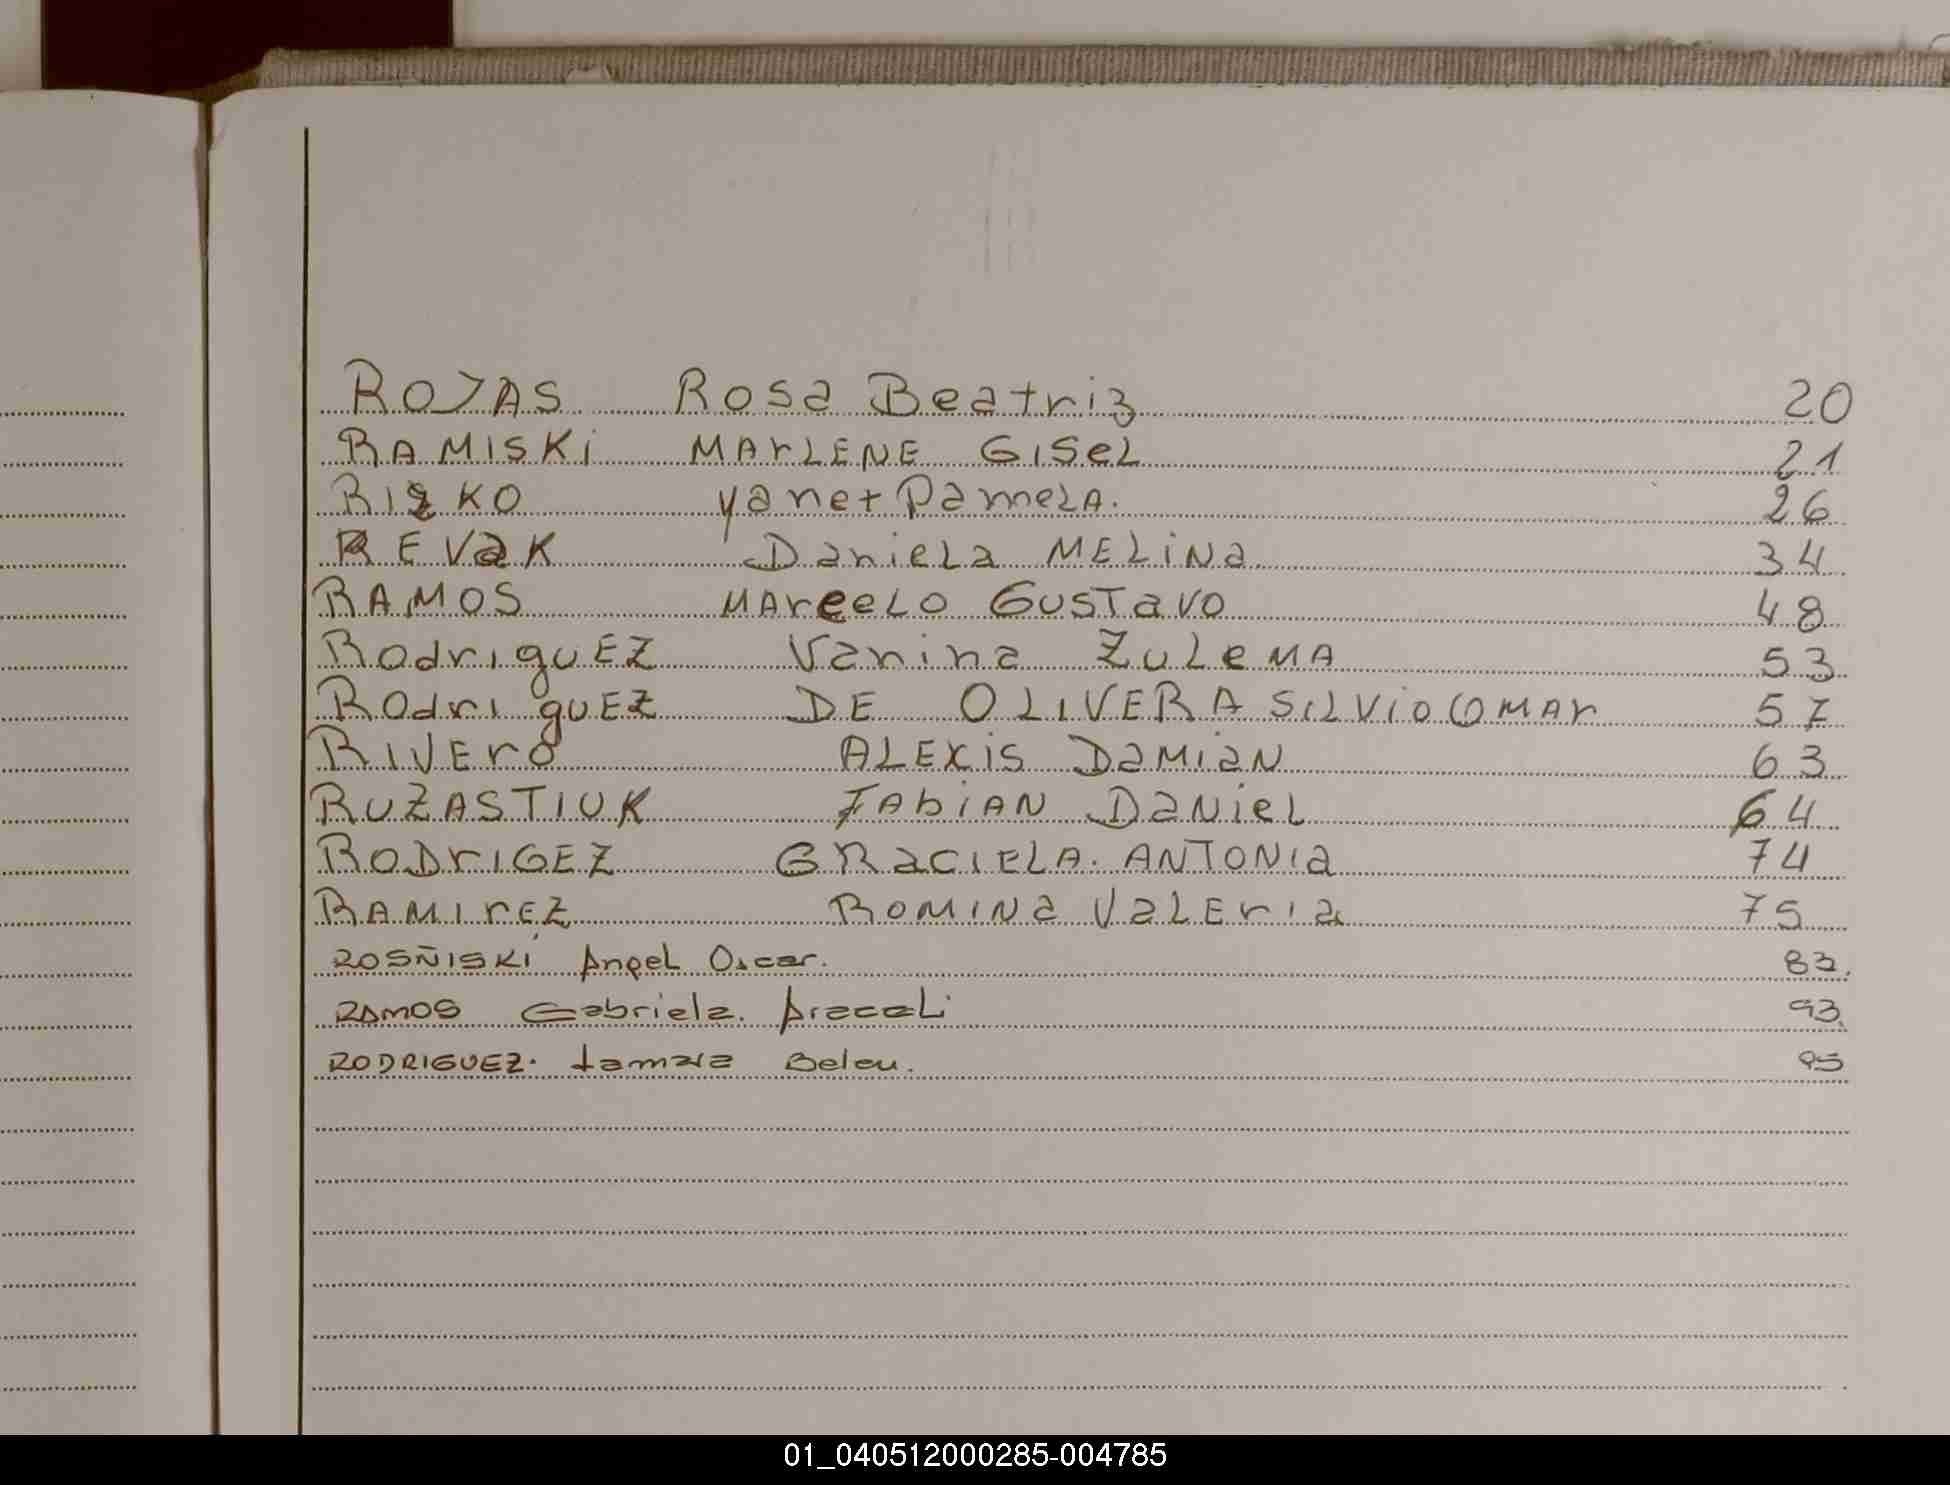 ROJAS Rosa Beatriz 20
RAMISKi MArLENE GISeL 21
RIZKO yanet PameLA. 26
REVaK DanieLa MELiNa 34
RAMOS MArceLO GUSTaVO 48
RodriguEZ Vanina ZuLeMA 53
ROdriguEZ DE OLIVERA SiLViO OMAr 57
RIVErO ALEXiS DaMiaN 63
RUZASTIUK FAbiAN DaNieL 64
RODrIGEZ GRaCIELA. ANTONIa 74
RAMIrEZ ROMINa VaLEria 75
ROSÑISKI Angel Oscar. 83.
RAMOS Gabriela. AraceLi 93.
RODRIGUEZ. tamara Belen. 95
01_040512000285-004785